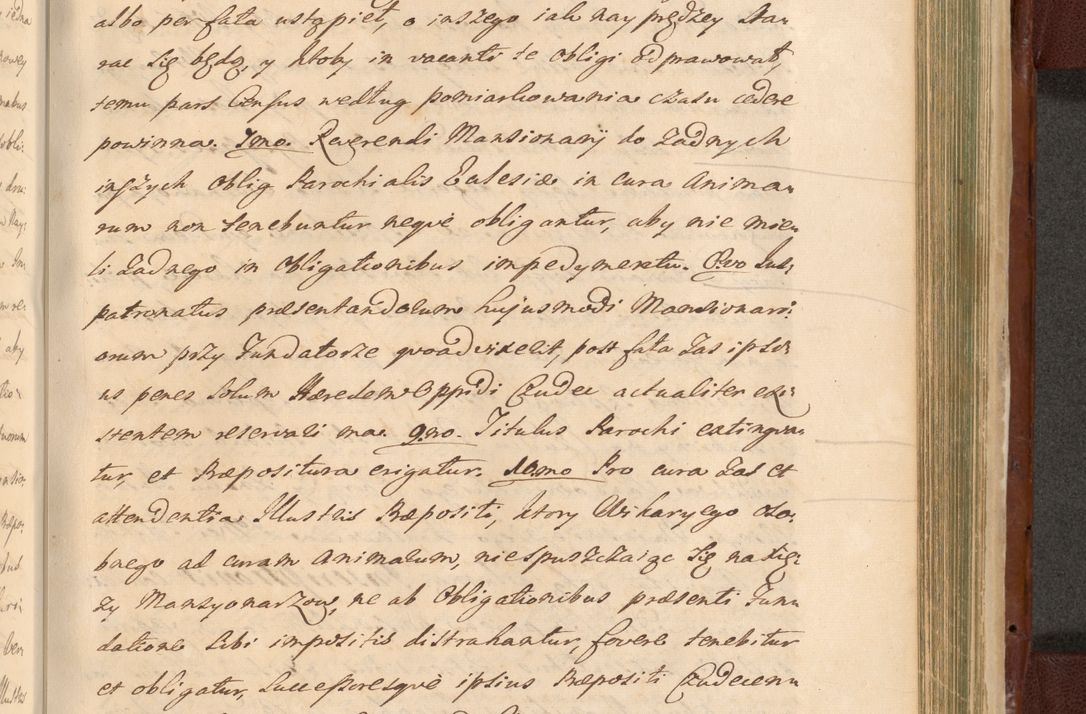 albo per fata ustąpiet, o inszego iak nayprędzey sta-
rac się będą, y ktoby in vacanti te obligi odprawował,
temu pars Census według pomiarkowania czasu cedere
powinna. 7mo. Reverendi Mansionarij do żadnych
inszych oblig Parochialis Eclesiæ in cura Anima-
rum non tenebuntur neqve obligantur, aby nie mie-
li żadnego in obligationibus impedymentu. 8vo Jus
patronatus præsentandorum hujusmodi Mansionari-
orum przy Fundatorze qvoadvixerit, post fata zas ipsi-
us penes solum Hæredem Oppidi Czudec actualiter exi-
stentem reservari ma. 9no. Titulus Parochi extingva-
tur, et Præpositura erigatur. 10mo Pro cura zas et
attendentia Illustris Præpositi, ktory Wikaryego oso-
bnego ad curam Animarum, niespuszczaiąc się na Xię-
ży Mansyonarzow, ne ab Obligationibus præsenti Fun-
datione sibi impositis distrahantur, fovere tenebitur
et obligatur, Successoresqve ipsius Præpositi Czudecen-